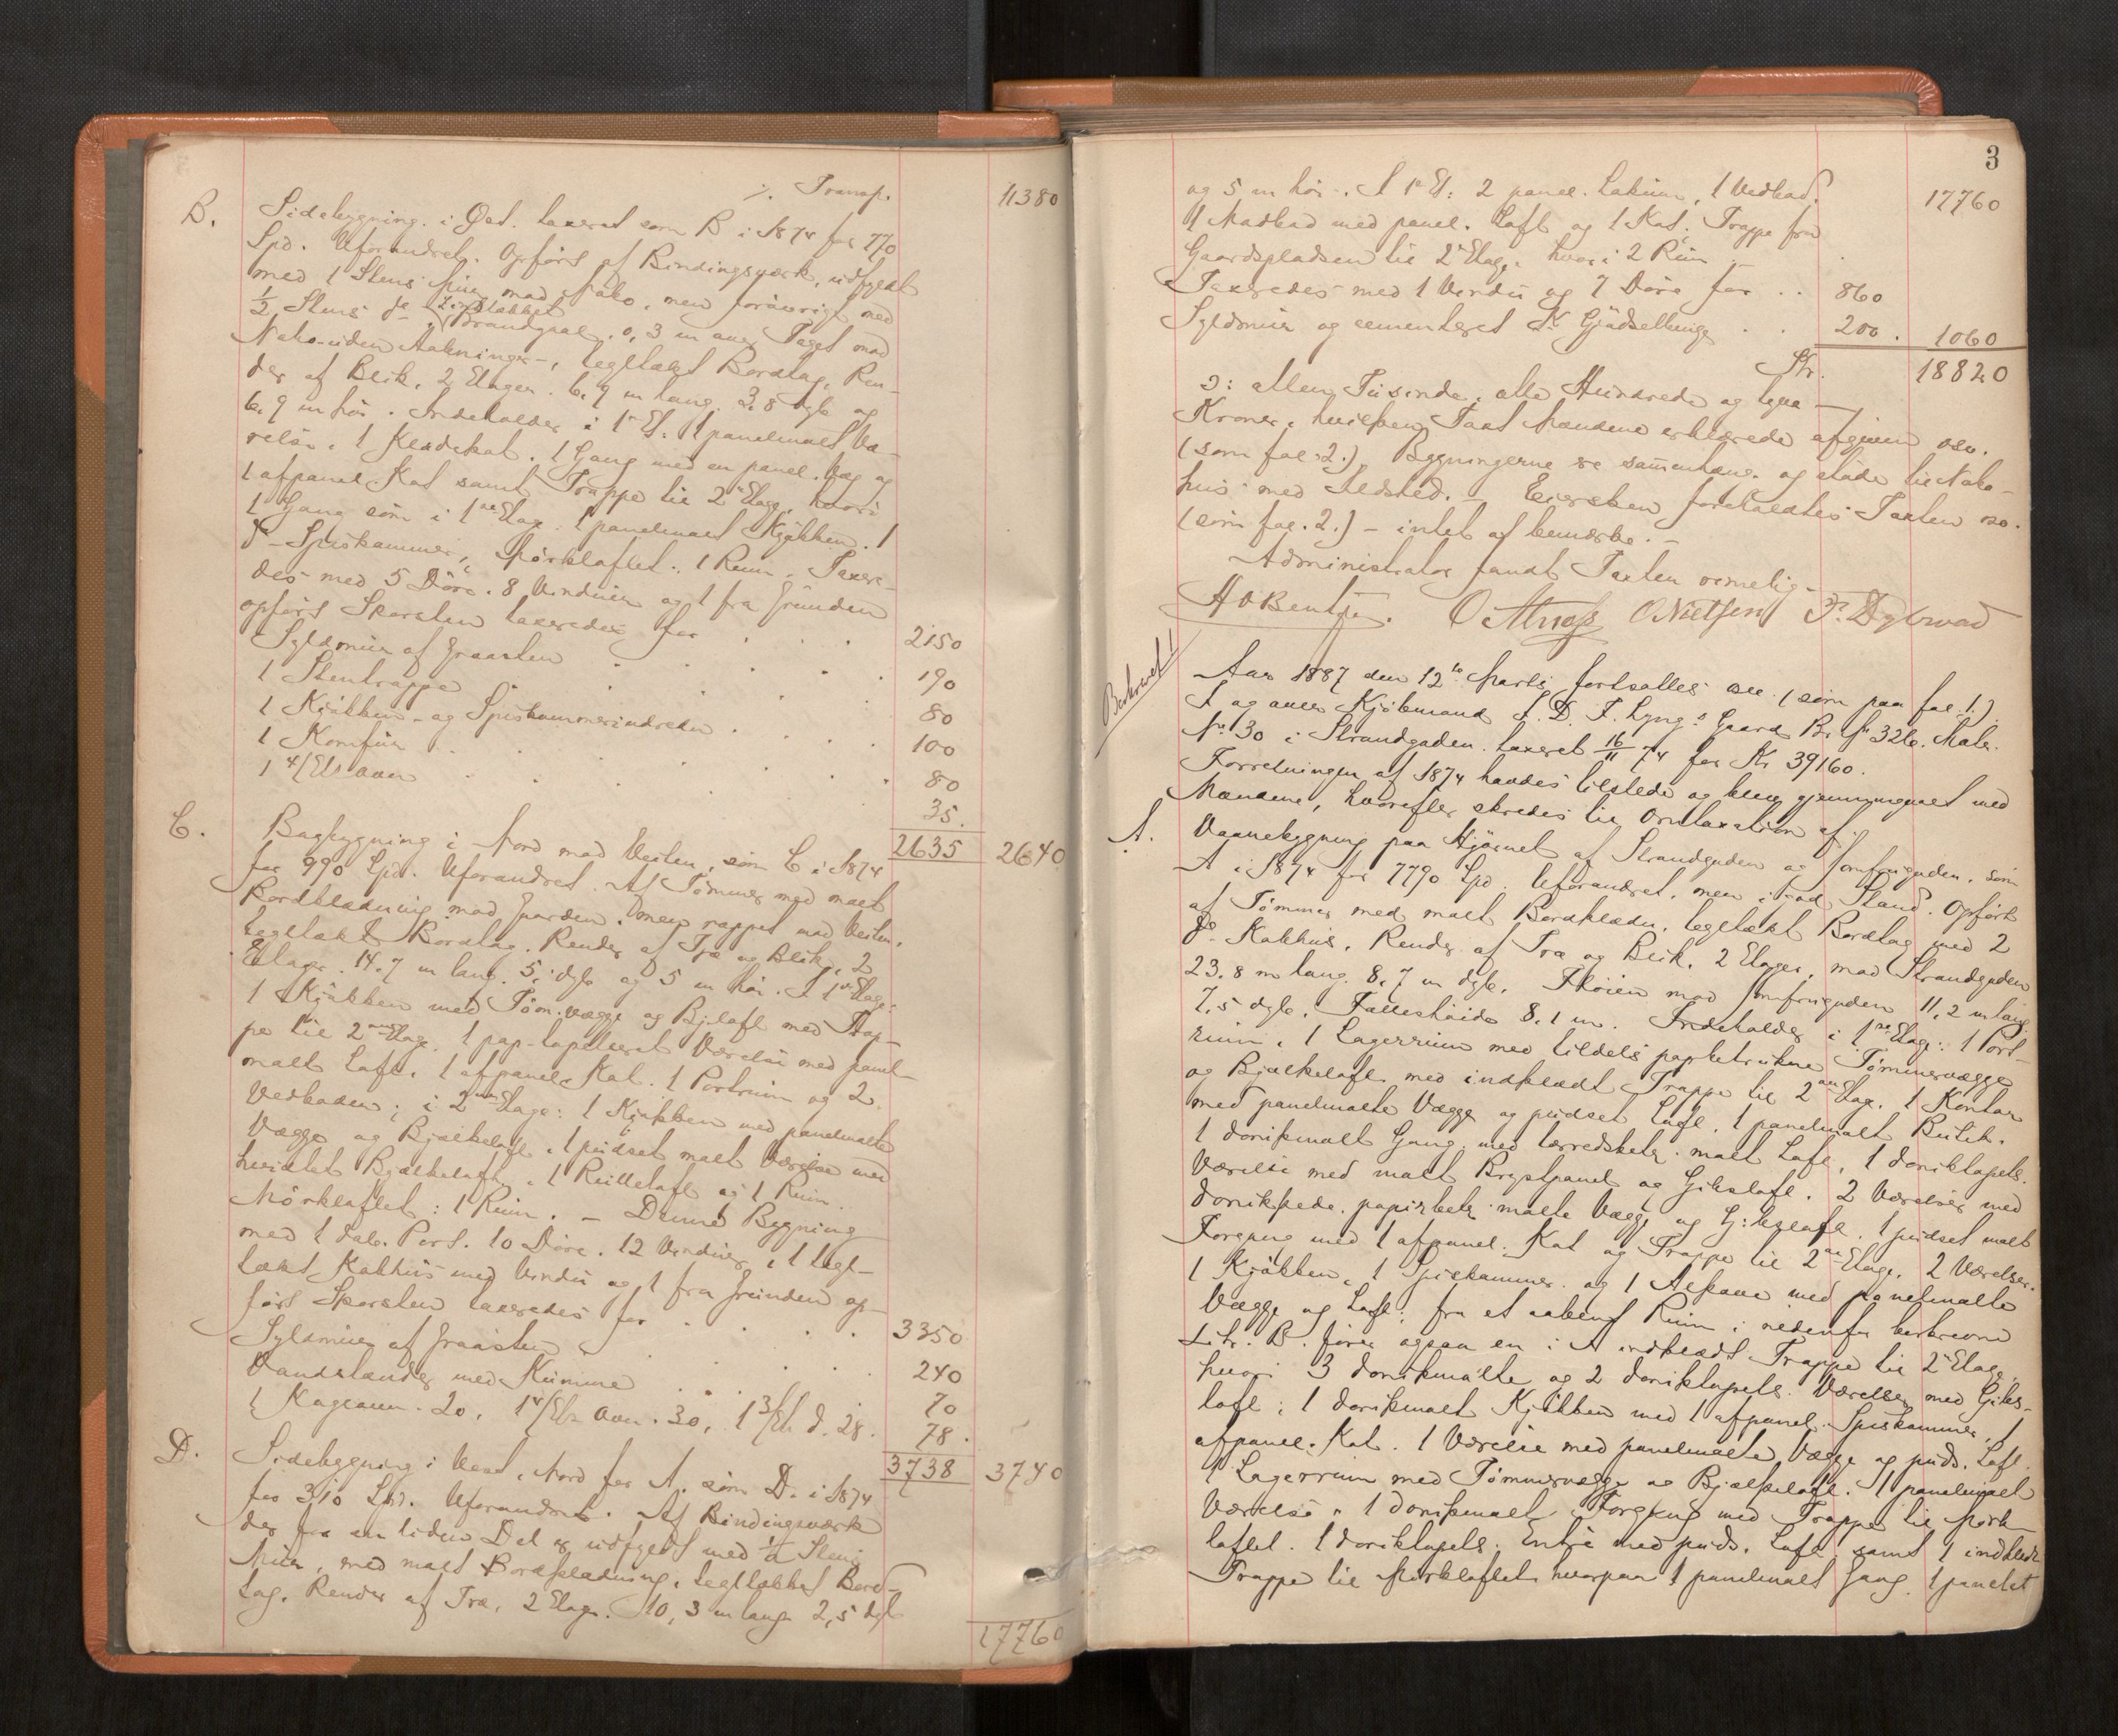 ·/. Transp. 11380
B. Sidebygning i Øst. taxeret som B i 1874 for 770
Spd. Uforandret. Opført af Bindingsværk, udfyldt
med 1 Stens Mur mod Nabo, men forøvrigt med
1/2 Stens do Zinktækket Brandgavl. 0,3 m over Taget mod
Nabo uden Aabninger, tegllækt Bordtag, Ren-
der af Blik. 2 Etager. 6,9 m lang 3,8 dyb og
6,9 m høi. Indeholder i 1e Et. 1 panelmalt Væ-
relse, 1 Klædekot. 1 Gang med en panel. Væg og
1 afpanel. Kot samt Trappe til 2e Etage, hvori
1 Gang som i 1ste Etage. 1 panelmalt Kjøkken. 1
do Spiskammer, Mørkloftet: 1 Rum. Taxere-
des med 5 Døre. 8 Vinduer og 1 fra Grunden
opført Skorsten taxeredes for . . . 2150
Syldmur af Graasten . . . 190
1 Stentrappe . . . 80
1 Kjøkken- og Spiskammerindreden . . . 100
1 Komfur . . . 80
1 4/Et Ovn . . . 35.
2635 2640
C. Bagbygning i Nord mod Veiten, som C i 1874
for 990 Spd. Uforandret. Af Tømmer med malt
Bordklædning mod Gaarden, men rappet mod Veiten,
teglækt Bordtag. Render af Træ og Blik, 2
Etager. 14,7 m lang. 5, dyb og 5 m høi. I 1e Etage:
1 Kjøkken med Tøm.vægge og Bj.loft med Trap-
pe til 2den Etage. 1 pap-tapetseret Værelse med panel-
malt Loft. 1 afpanel. Kot. 1 Portrum og 2
Vedboder; i 2den Etage: 1 Kjøkken med panelmalte
Vægge og Bjælkeloft, 1 pudset malt Værelse med
hvidtet Bjælkeloft, 1 Rulleloft og 1 Rum.
Mørkloftet: 1 Rum. – Denne Bygning
med 1 dob. Port. 10 Døre. 12 Vinduer, 1 tegl-
lækt Kakhus med Vindu og 1 fra Grunden op-
ført Skorsten taxeredes for . . . 3350
Syldmur af Graasten . . . 240
Vandstænder med Kumme . . . 70
1 Kageovn. 20, 1 4/Et. Ovn. 30, 1 3/Et d. 28. 78.
3738 3740
D. Sidebygning i Vest, Nord for A. som D. i 1874
for 310 Spd. Uforandret. Af Bindingsværk
der for en liden Del er udfyldt med 1/2 Stens
Mur, med malt Bordklædning, teglækket Bord-
tag. Render af Træ, 2 Etager. 10,3 m lang 2,5 dyb
17760
3
og 5 m høi. I 1e Et: 2 panel. Lokum, 1 Vedbod. 17760
1 Madbod med panel. Loft og 1 Kot, Trappe fra
Gaardspladsen til 2e Etage, hvori 2 Rum
Taxeredes med 1 Vindu og 7 Døre for . . 860
Syldmur og cementeret Gjødselbinge . . 200. 1060
Kr. 18820
ɔ: atten Tusinde, otte Hundrede og tyve
Kroner, hvilken Taxt Mændene erklærede afgiven osv.
(som fol. 2.) Bygningerne ere sammenhæng. og støde til Nabo-
hus med Ildsted. – Eiersken foreholdtes Taxten osv.
(som fol. 2.) – intet at bemærke. –
Administrator fandt Taxten rimelig.
O Næss O Nielsen F. Dybwad
Beskrevet!
Aar 1887 den 12te Marts fortsattes osv. (som paa fol. 1.)
I og over Kjøbmand I. D. F. Lyng's Gaard Br. No 326. Matr.
No 30 i Strandgaden. taxeret 16/11 74 for Kr 39160.
Forretningen af 1874 havdes tilstede og blev gjennemgaaet med
Mændene, hvorefter skredes til Omtaxation af:
A. Vaanebygning paa Hjørnet af Strandgaden og Jomfrugaden, som
A i 1874 for 7790 Spd. Uforandret, men i god Stand. Opført
af Tømmer med malt Bordklædn. teglækt Bordtag med 2
do Kakhus. Render af Træ og Blik. 2 Etager, mod Strandgaden
23,8 m lang. 8,7 m dyb. Fløien mod Jomfrugaden 11,2 m lang
7,5 dyb. Fælleshøide 8,1 m. Indeholder i 1ste Etage: 1 Port-
rum, 1 Lagerrum med tildels papbetrukne Tømmervægge
og Bjælkeloft med indklædt Trappe til 2den Etage. 1 Kontor
med panelmalte Vægge og pudset Loft, 1 panelmalt Butik.
1 donikmalt Gang med lærredsbetr. malt Loft, 1 doniktapets.
Værelse med malt Brystpanel og Gibsloft. 2 Værelser med
donikklæde. papirbetr. malte Vægge og Gibsloft. 1 pudset malt
Forgang med 1 afpanel. Kot og Trappe til 2den Etage. 2 Værelser.
1 Kjøkken, 1 Spiskammer og 1 Alkove med panelmalte
Vægge og Loft; fra et aabent Rum i nedenfor beskrevne
Litr. B. fører ogsaa en i A indklædt Trappe til 2e Etage,
hvori 3 donikmalte og 2 doniktapets. Værelser med Gibs-
loft; 1 donikmalt Kjøkken med 1 afpanel. Spiskammer, 1
afpanel. Kot. 1 Værelse med panelmalte Vægge og puds. Loft.
1 Lagerrum med Tømmervægge og Bjælkeloft. 1 panelmalt
Værelse, 1 donikmalt Forgang med Trappe til Mørk-
loftet. 1 doniktapets. Entré med puds. Loft samt 1 indklædt
Trappe til Mørkloftet hvorpaa 1 panelmalt Gang. 1 panelet